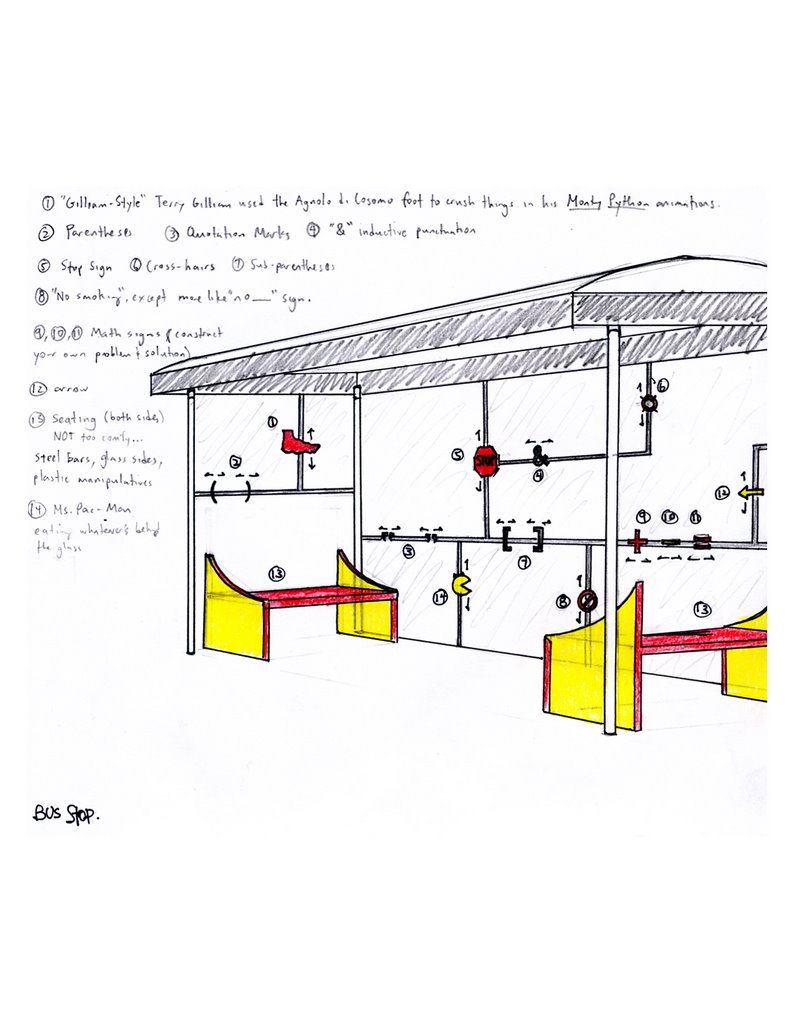 ① "Gilliam-Style" Terry Gilliam used the Agnolo di Cosomo foot to crush things in his Monty Python animations.
② Parentheses ③ Quotation Marks ④ "&" inductive punctuation
⑤ Stop Sign ⑥ Cross-hairs ⑦ Sub-parentheses
⑧ "No smoking", except more like "no ___" sign.
⑨, ⑩, ⑪ Math signs (construct
your own problem & solution)
⑫ arrow
⑬ Seating (both sides)
NOT too comfy...
steel bars, glass sides,
plastic manipulatives
⑭ Ms. Pac-Man
eating whatever's behind
the glass
①
②
③
④
⑤
STOP
⑥
⑦
⑧
⑨ ⑩ ⑪
⑫
⑬
⑭
⑬
BUS STOP.